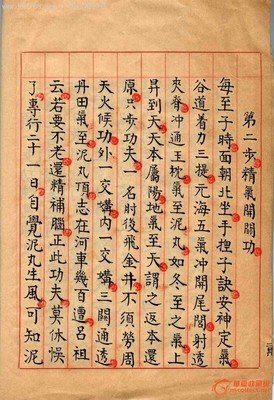 第二步精氣開關功
每至子時面朝北坐手揑子訣安神定氣
谷道着力三提元海五氣冲開尾閭射透
夾脊冲通玉枕氣至泥丸如冬至之氣上
昇到天天本屬陽地氣至天謂之返本還
原只步功夫一名肘後飛金井不須勞周
天火候功外一交媾內一交媾三關通透
丹田氣至泥丸頂志在河車幾百遭呂祖
云若要不老還精補腦正此功夫莫休悞
了專行二十一日自覺泥丸生風可知泥
華夏收藏網